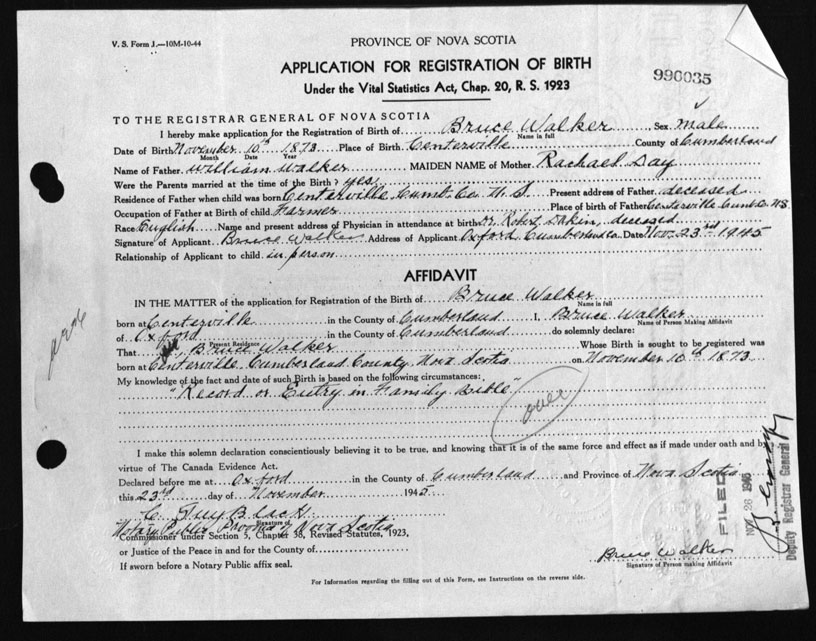 V. S. Form J.—10M-10-44
PROVINCE OF NOVA SCOTIA
APPLICATION FOR REGISTRATION OF BIRTH
990035
Under the Vital Statistics Act, Chap. 20, R. S. 1923
TO THE REGISTRAR GENERAL OF NOVA SCOTIA
I hereby make application for the Registration of Birth of Bruce Walker Sex male
Name in full
Date of Birth November 10th 1873 Place of Birth Centerville County of Cumberland
Month Date Year
Name of Father William Walker MAIDEN NAME of Mother Rachael Day
Were the Parents married at the time of the Birth? yes
Residence of Father when child was born Centerville Cumb. Co. N.S. Present address of Father deceased
Occupation of Father at Birth of child Farmer Place of birth of Father Centerville Cumb. Co. N.S.
Race English Name and present address of Physician in attendance at birth Dr. Robert Dakin, deceased
Signature of Applicant Bruce Walker Address of Applicant Oxford Cumberland Co. Date Nov. 23rd 1945
Relationship of Applicant to child in person
AFFIDAVIT
IN THE MATTER of the application for Registration of the Birth of Bruce Walker
Name in full
born at Centerville in the County of Cumberland I, Bruce Walker
Name of Person Making Affidavit
of Oxford in the County of Cumberland do solemnly declare:
Present Residence
That I, Bruce Walker Whose Birth is sought to be registered was
born at Centerville Cumberland County, Nova Scotia on November 10th 1873
My knowledge of the fact and date of such Birth is based on the following circumstances:
"Record or Entry in Family Bible"
over
I make this solemn declaration conscientiously believing it to be true, and knowing that it is of the same force and effect as if made under oath and by
virtue of The Canada Evidence Act.
Declared before me at Oxford in the County of Cumberland and Province of Nova Scotia
this 23rd day of November 1945
C. Guy Black
Signature of
Notary Public Province of Nova Scotia
Commissioner under Section 5, Chapter 38, Revised Statutes, 1923,
or Justice of the Peace in and for the County of
If sworn before a Notary Public affix seal.
Bruce Walker
Signature of Person making Affidavit
For Information regarding the filling out of this Form, see Instructions on the reverse side.
FILED
NOV 26 1945
Deputy Registrar General